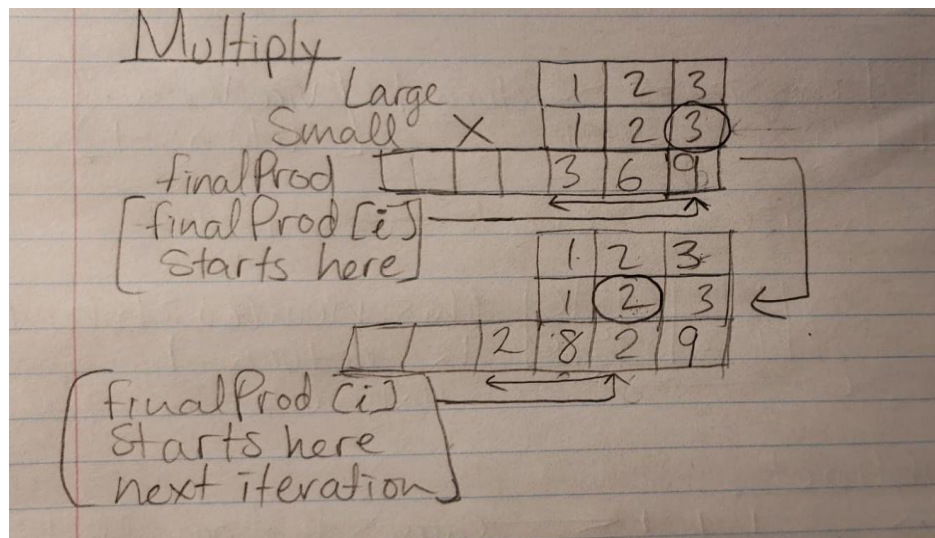 Multiply
Large 1 2 3
Small X 1 2 3
finalProd 3 6 9
[finalProd[i]
Starts here]
1 2 3
1 2 3
2 8 2 9
[finalProd[i]
Starts here
next iteration]